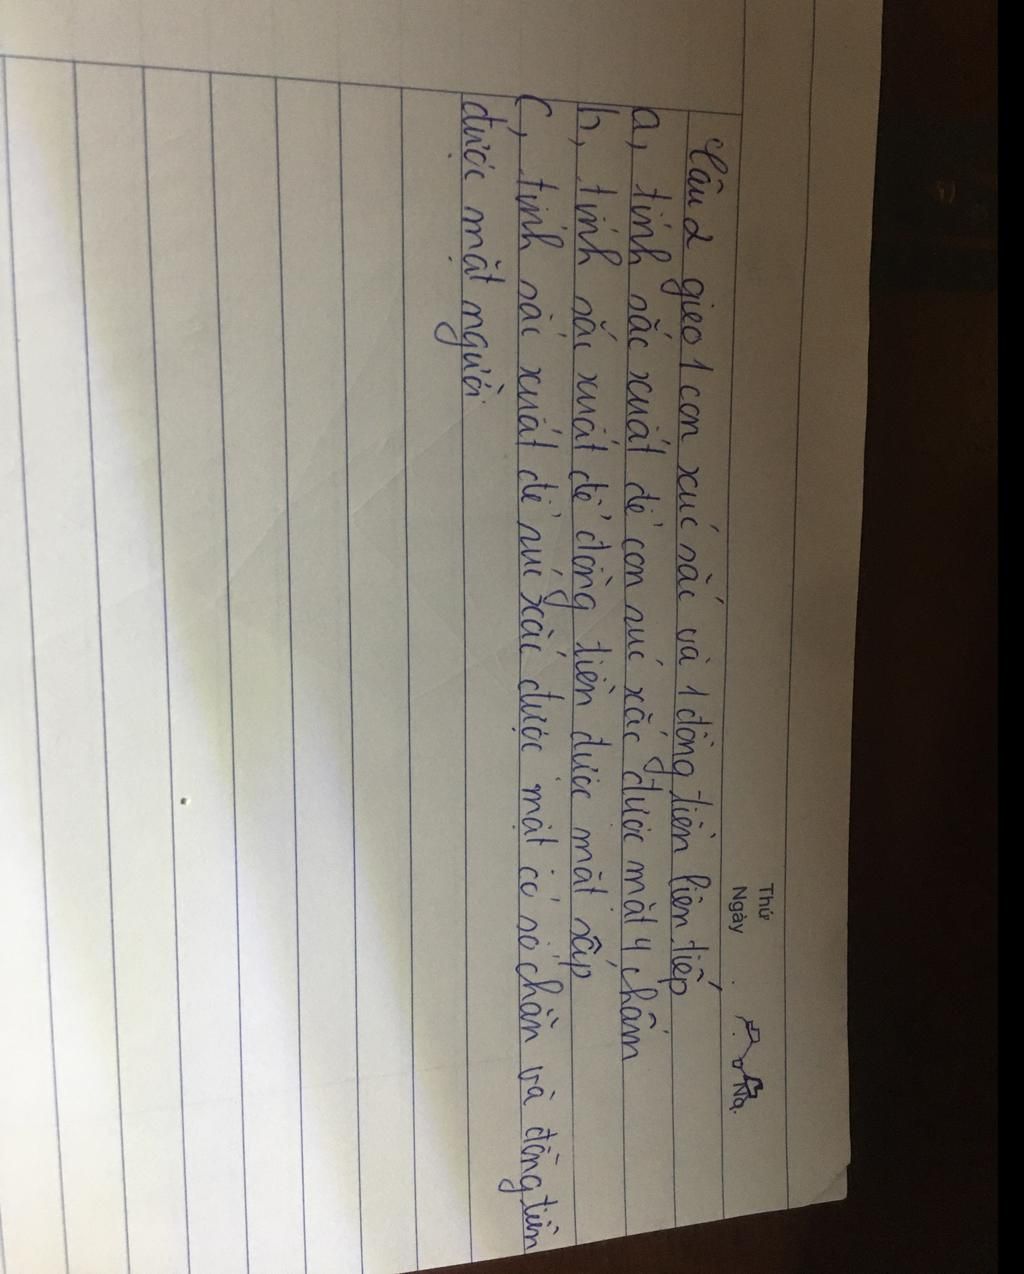 Thứ
Ngày
Câu 2 gieo 1 con xúc sắc và 1 đồng tiền liên tiếp
a, tính sắc xuất để con súc xắc được mặt 4 chấm
b, tính sắc xuất để đồng tiền được mặt sấp
c, tính sác xuất để súc xắc được mặt có số chẵn và đồng tiền
được mặt ngửa